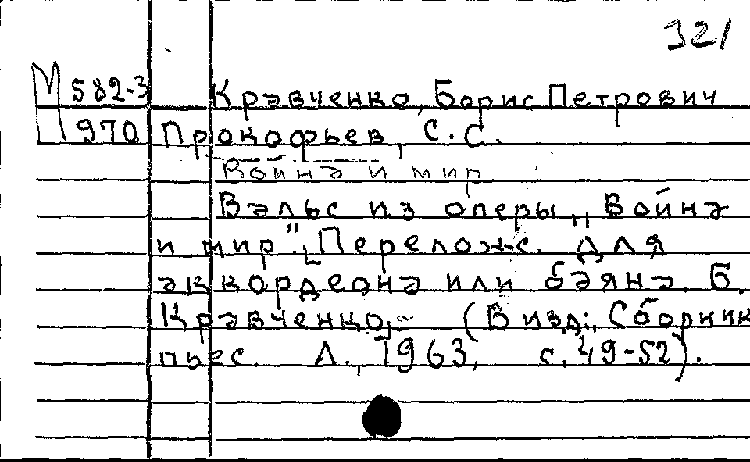 321
М 582-3 Кравченко, Борис Петрович
Ц 970 Прокофьев, С.С.
Война и мир
Вальс из оперы „Война
и мир". Перелож. для
аккордеона или баяна Б.
Кравченко,- (В изд.: Сборник
пьес. Л., 1963, с. 49-52).